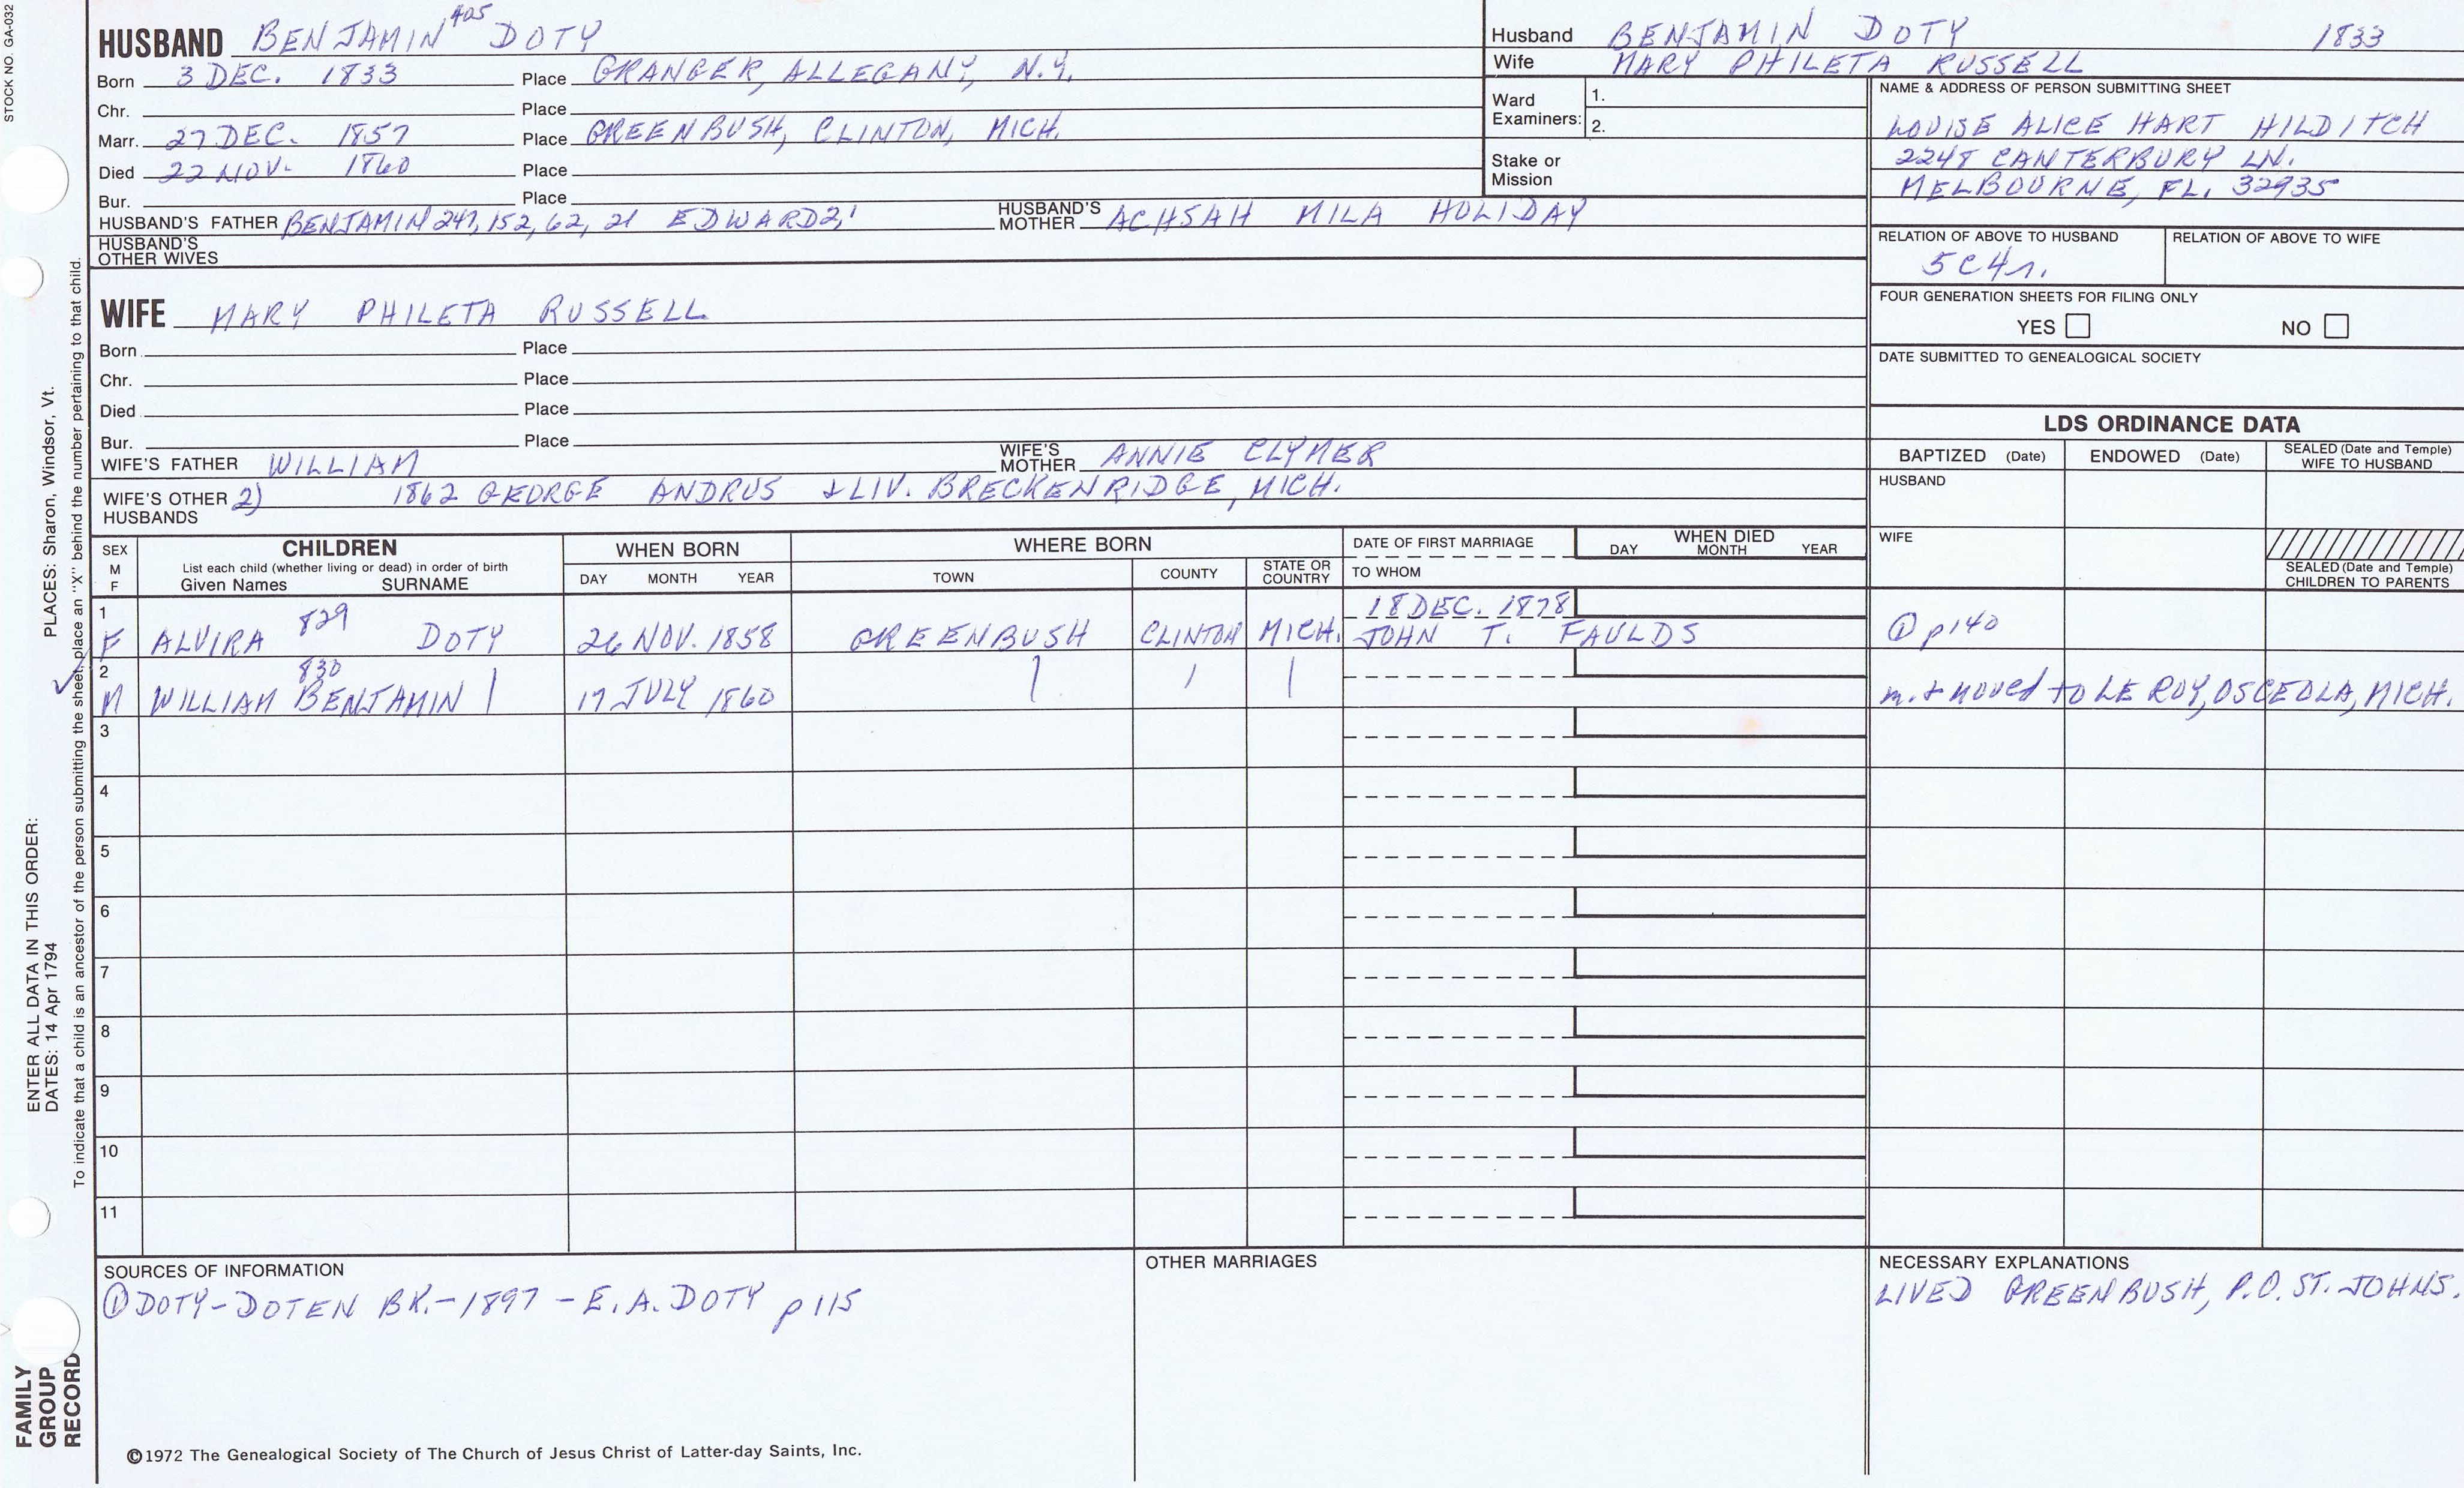 STOCK NO. GA-032
HUSBAND BENJAMIN 405 DOTY
Born 3 DEC. 1833 Place GRANGER, ALLEGANY, N.Y.
Chr. Place
Marr. 27 DEC. 1857 Place GREENBUSH, CLINTON, MICH.
Died 22 NOV. 1860 Place
Bur. Place
HUSBAND'S FATHER BENJAMIN 247, 152, 62, 21 EDWARD 2, 1 HUSBAND'S MOTHER ACHSAH MILA HOLIDAY
HUSBAND'S OTHER WIVES
Husband BENJAMIN DOTY 1833
Wife MARY PHILETA RUSSELL
Ward Examiners: 1.
2.
Stake or Mission
NAME & ADDRESS OF PERSON SUBMITTING SHEET
LOUISE ALICE HART HILDITCH
2248 CANTERBURY LN.
MELBOURNE, FL. 32935
RELATION OF ABOVE TO HUSBAND RELATION OF ABOVE TO WIFE
5C4r.
FOUR GENERATION SHEETS FOR FILING ONLY
YES NO
DATE SUBMITTED TO GENEALOGICAL SOCIETY
WIFE MARY PHILETA RUSSELL
Born Place
Chr. Place
Died Place
Bur. Place
WIFE'S FATHER WILLIAM WIFE'S MOTHER ANNIE CLYMER
WIFE'S OTHER HUSBANDS 2) 1862 GEORGE ANDRUS & LIV. BRECKENRIDGE, MICH.
LDS ORDINANCE DATA
BAPTIZED (Date) ENDOWED (Date) SEALED (Date and Temple) WIFE TO HUSBAND
HUSBAND
WIFE
SEALED (Date and Temple) CHILDREN TO PARENTS
SEX M F CHILDREN WHEN BORN WHERE BORN DATE OF FIRST MARRIAGE WHEN DIED
List each child (whether living or dead) in order of birth
Given Names SURNAME DAY MONTH YEAR TOWN COUNTY STATE OR COUNTRY TO WHOM DAY MONTH YEAR
1 829 18 DEC. 1878
F ALVIRA DOTY 26 NOV. 1858 GREENBUSH CLINTON MICH. JOHN T. FAULDS ① p140
2 830
M WILLIAM BENJAMIN 17 JULY 1860 m. & moved to LE ROY, OSCEOLA, MICH.
3
4
5
6
7
8
9
10
11
SOURCES OF INFORMATION
① DOTY-DOTEN BK.-1897 - E.A. DOTY p 115
OTHER MARRIAGES
NECESSARY EXPLANATIONS
LIVED GREENBUSH, P.O. ST. JOHNS.
©1972 The Genealogical Society of The Church of Jesus Christ of Latter-day Saints, Inc.
FAMILY GROUP RECORD
ENTER ALL DATA IN THIS ORDER:
DATES: 14 Apr 1794
PLACES: Sharon, Windsor, Vt.
To indicate that a child is an ancestor of the person submitting the sheet, place an "X" behind the number pertaining to that child.